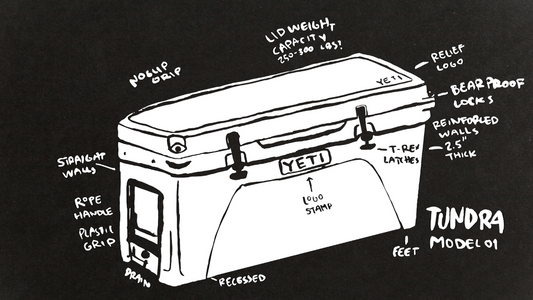 LID WEIGHT
CAPACITY
250-300 LBS!
NOSLIP
GRIP
RELIEF
LOGO
YETI
BEARPROOF
LOCKS
REINFORCED
WALLS
2.5"
THICK
T-REX
LATCHES
STRAIGHT
WALLS
YETI
LOGO
STAMP
ROPE
HANDLE
PLASTIC
GRIP
TUNDRA
MODEL 01
FEET
DRAIN
RECESSED